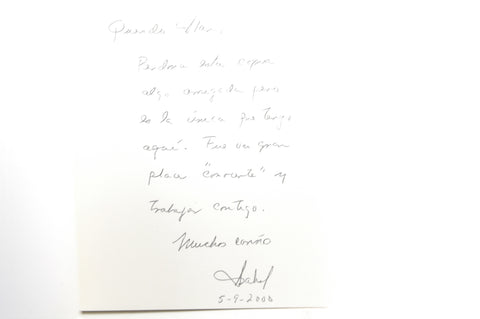 Querido Alan,
Perdona esta copia
algo arrugada pero
es la única que tengo
aquí. Fue un gran
placer "conocerte" y
trabajar contigo.
Muchos cariño
Isabel
5-9-2000